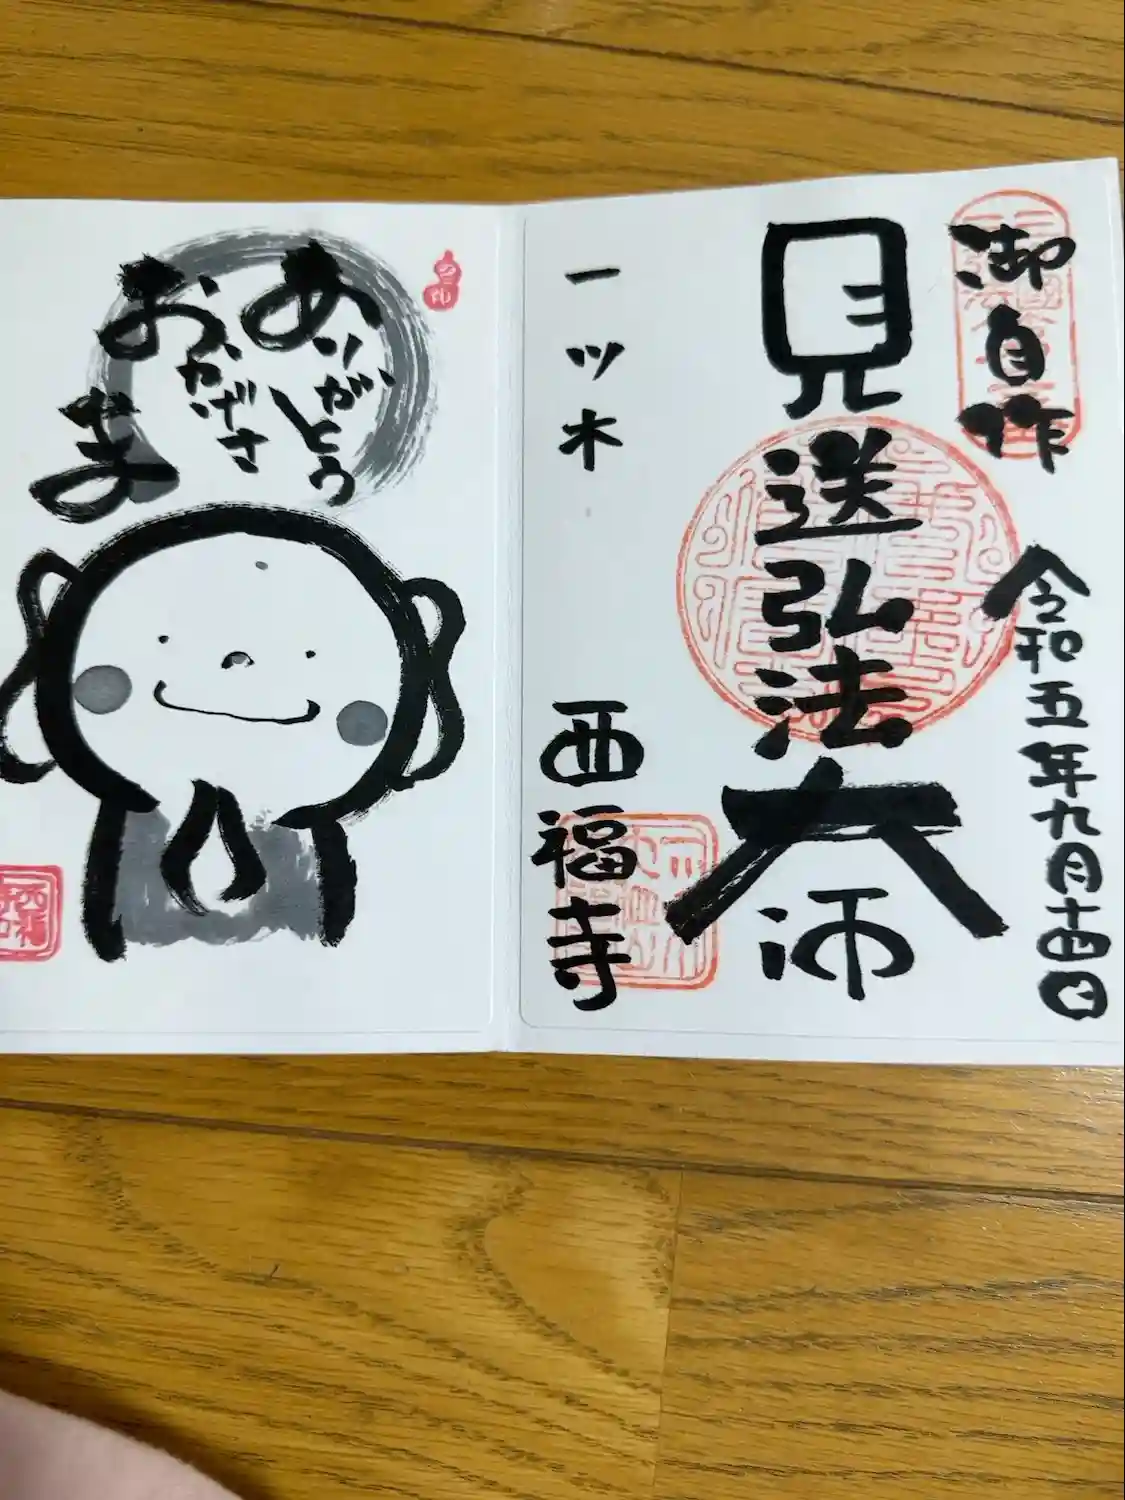 御自作
令和五年九月十四日
見送弘法大師
一ツ木
西福寺
ありがとう
おかげさま